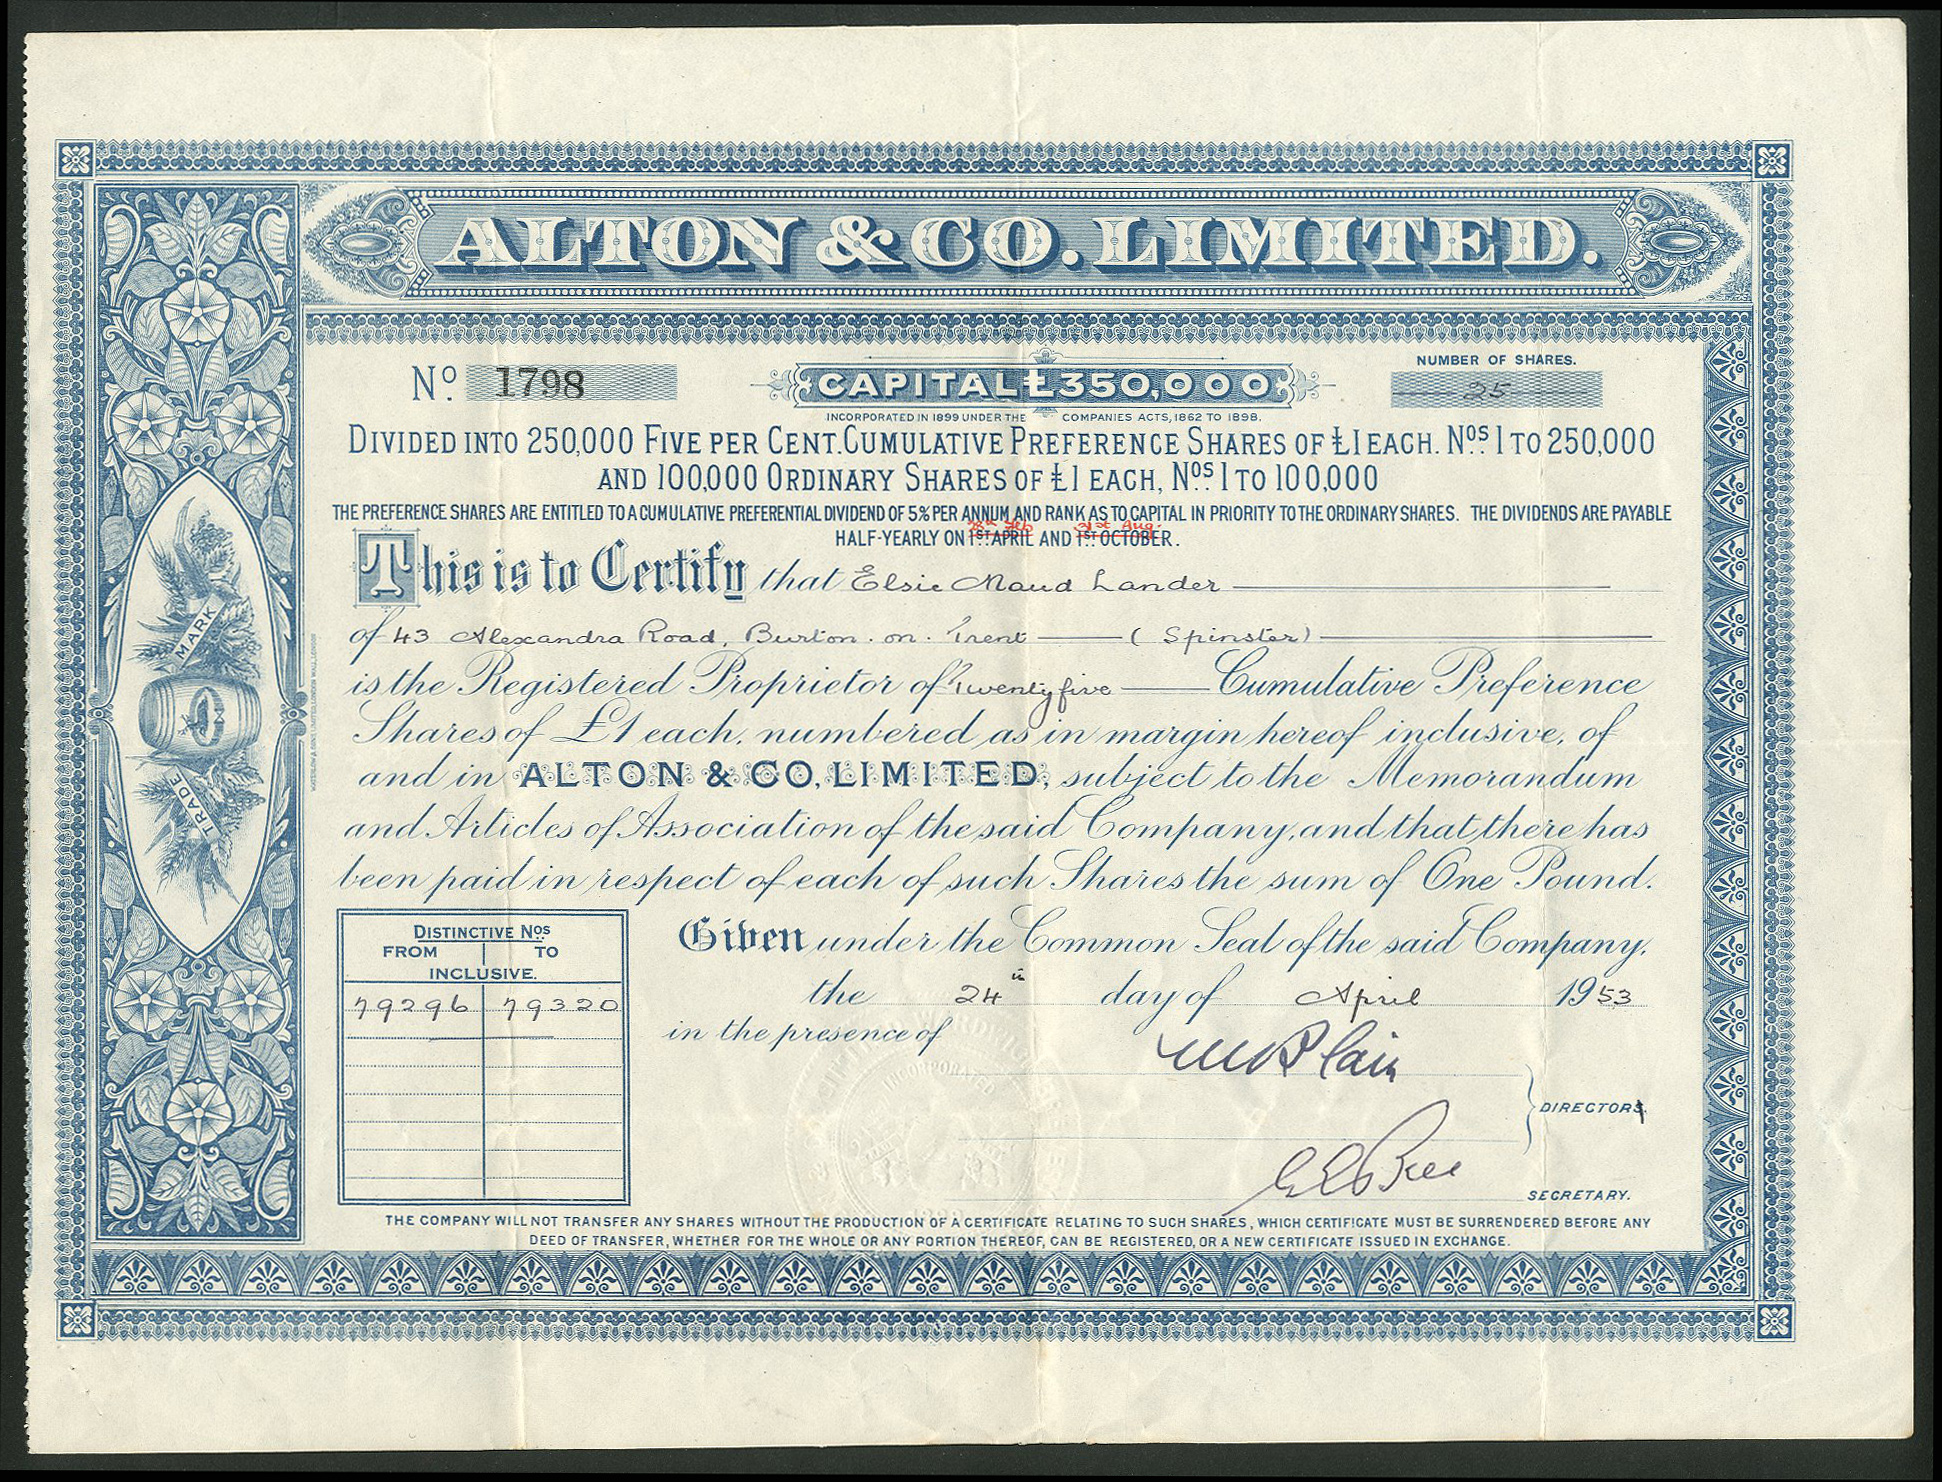 ALTON & CO. LIMITED.
No. 1798
CAPITAL £350,000
NUMBER OF SHARES.
25
INCORPORATED IN 1899 UNDER THE COMPANIES ACTS, 1862 TO 1898.
DIVIDED INTO 250,000 FIVE PER CENT. CUMULATIVE PREFERENCE SHARES OF £1 EACH. Nos. 1 TO 250,000
AND 100,000 ORDINARY SHARES OF £1 EACH, Nos. 1 TO 100,000
THE PREFERENCE SHARES ARE ENTITLED TO A CUMULATIVE PREFERENTIAL DIVIDEND OF 5% PER ANNUM AND RANK AS TO CAPITAL IN PRIORITY TO THE ORDINARY SHARES. THE DIVIDENDS ARE PAYABLE
28th Feb 31st Aug.
HALF-YEARLY ON 1ST APRIL AND 1ST OCTOBER.
This is to Certify that Elsie Maud Lander
of 43 Alexandra Road, Burton. on. Trent (Spinster)
is the Registered Proprietor of Twenty five Cumulative Preference
Shares of £1 each, numbered as in margin hereof inclusive, of
and in ALTON & CO, LIMITED, subject to the Memorandum
and Articles of Association of the said Company, and that there has
been paid in respect of each of such Shares the sum of One Pound.
MARK
TRADE
DISTINCTIVE Nos.
FROM TO
INCLUSIVE.
79296 79320
Given under the Common Seal of the said Company,
the 24th day of April 1953
in the presence of
DIRECTORS
SECRETARY.
INCORPORATED
THE COMPANY WILL NOT TRANSFER ANY SHARES WITHOUT THE PRODUCTION OF A CERTIFICATE RELATING TO SUCH SHARES, WHICH CERTIFICATE MUST BE SURRENDERED BEFORE ANY
DEED OF TRANSFER, WHETHER FOR THE WHOLE OR ANY PORTION THEREOF, CAN BE REGISTERED, OR A NEW CERTIFICATE ISSUED IN EXCHANGE.